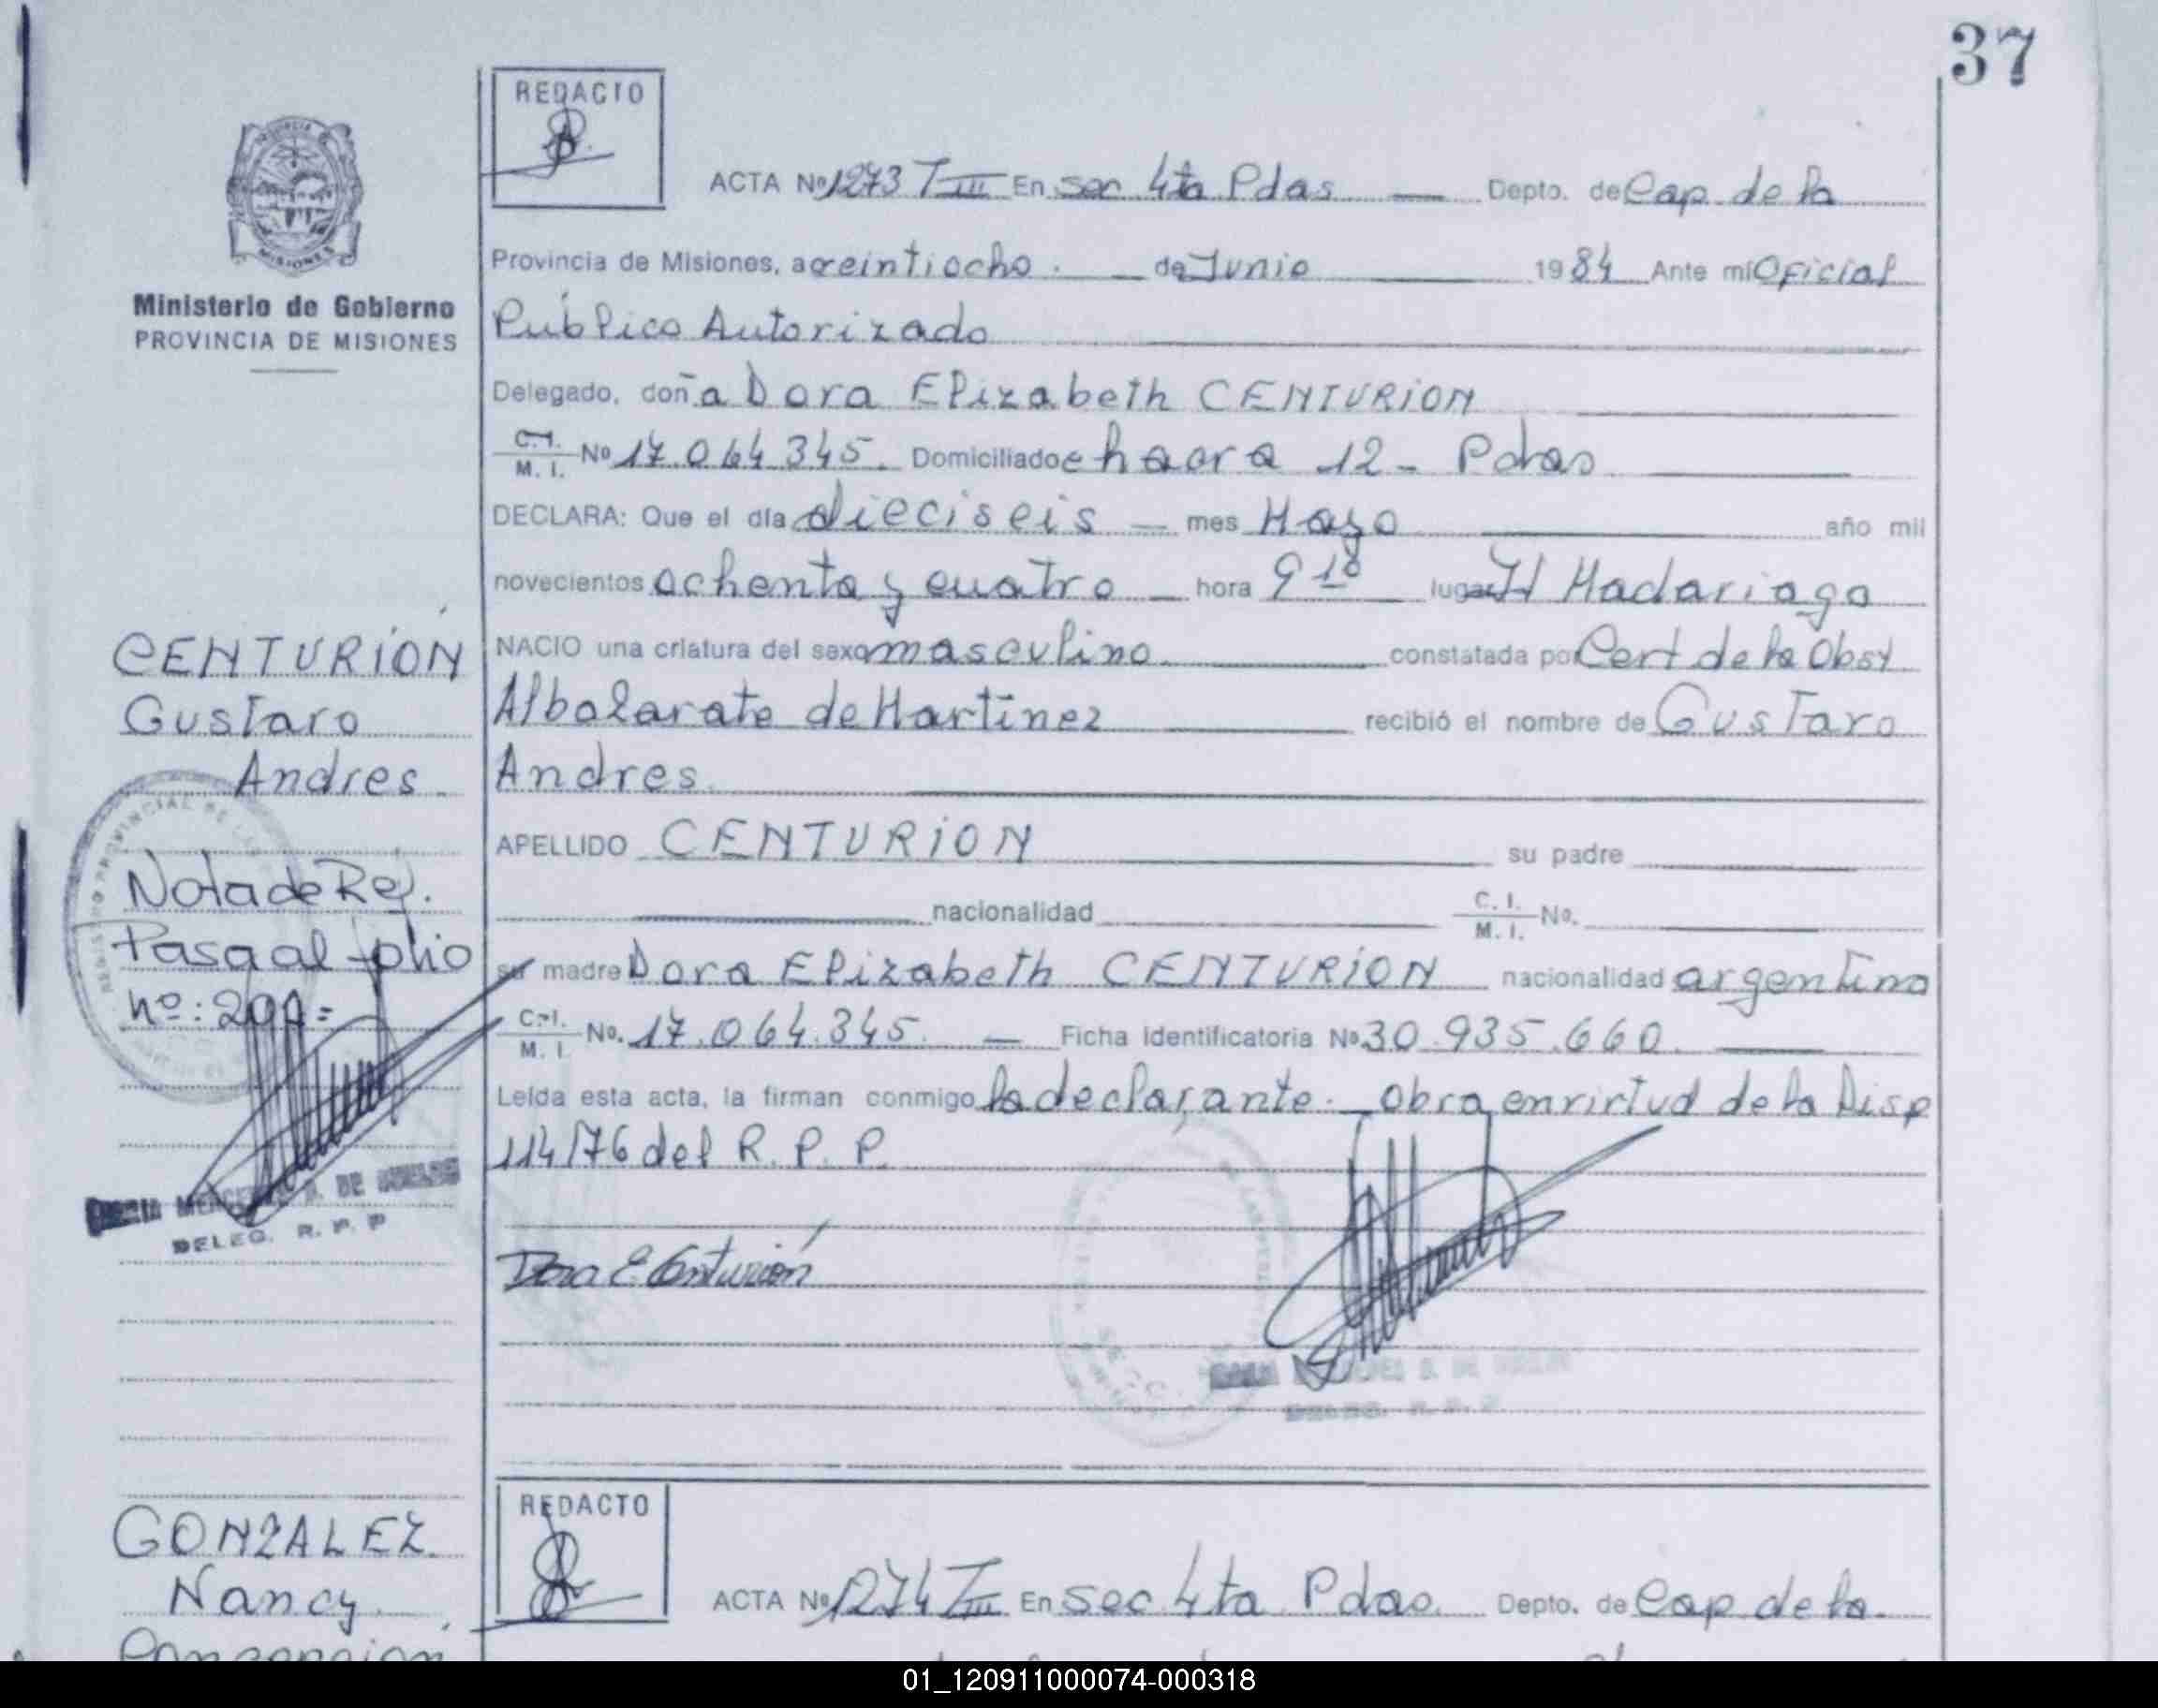 37
REDACTO
ACTA Nº 1273 T III En sec 4ta Pdas — Depto. de Cap. de la
Provincia de Misiones, a veintiocho. — de Junio 1984 Ante mí Oficial
Ministerio de Gobierno
PROVINCIA DE MISIONES
Público Autorizado
Delegado, doña Dora Elizabeth CENTURION
C.I. M. I. Nº 17.064.345. Domiciliado chacra 12 - Pdas
DECLARA: Que el día dieciseis — mes Mayo año mil
novecientos ochenta y cuatro — hora 9 10 lugar H Madariaga
CENTURION
NACIO una criatura del sexo masculino constatada por Cert de la Obst
Gustavo
de Martinez recibió el nombre de Gustavo
Andres
Andres
APELLIDO CENTURION su padre
Nota de Ref.
nacionalidad C. I. M. I. No.
Pasa al folio
su madre Dora Elizabeth CENTURION nacionalidad argentina
nº:
C.I. M. I. No. 17.064.345. — Ficha Identificatoria No 30.935.660.
Leída esta acta, la firman conmigo la declarante. Obra en virtud de la Disp
114/76 del R. P. P.
DE
DELEG. R. P. P
Dora E Centurión
DELEG. R. P. P
GONZALEZ
REDACTO
Nancy
ACTA Nº 1274 T III En sec 4ta Pdas. Depto. de Cap de la
Concepcion
01_120911000074-000318